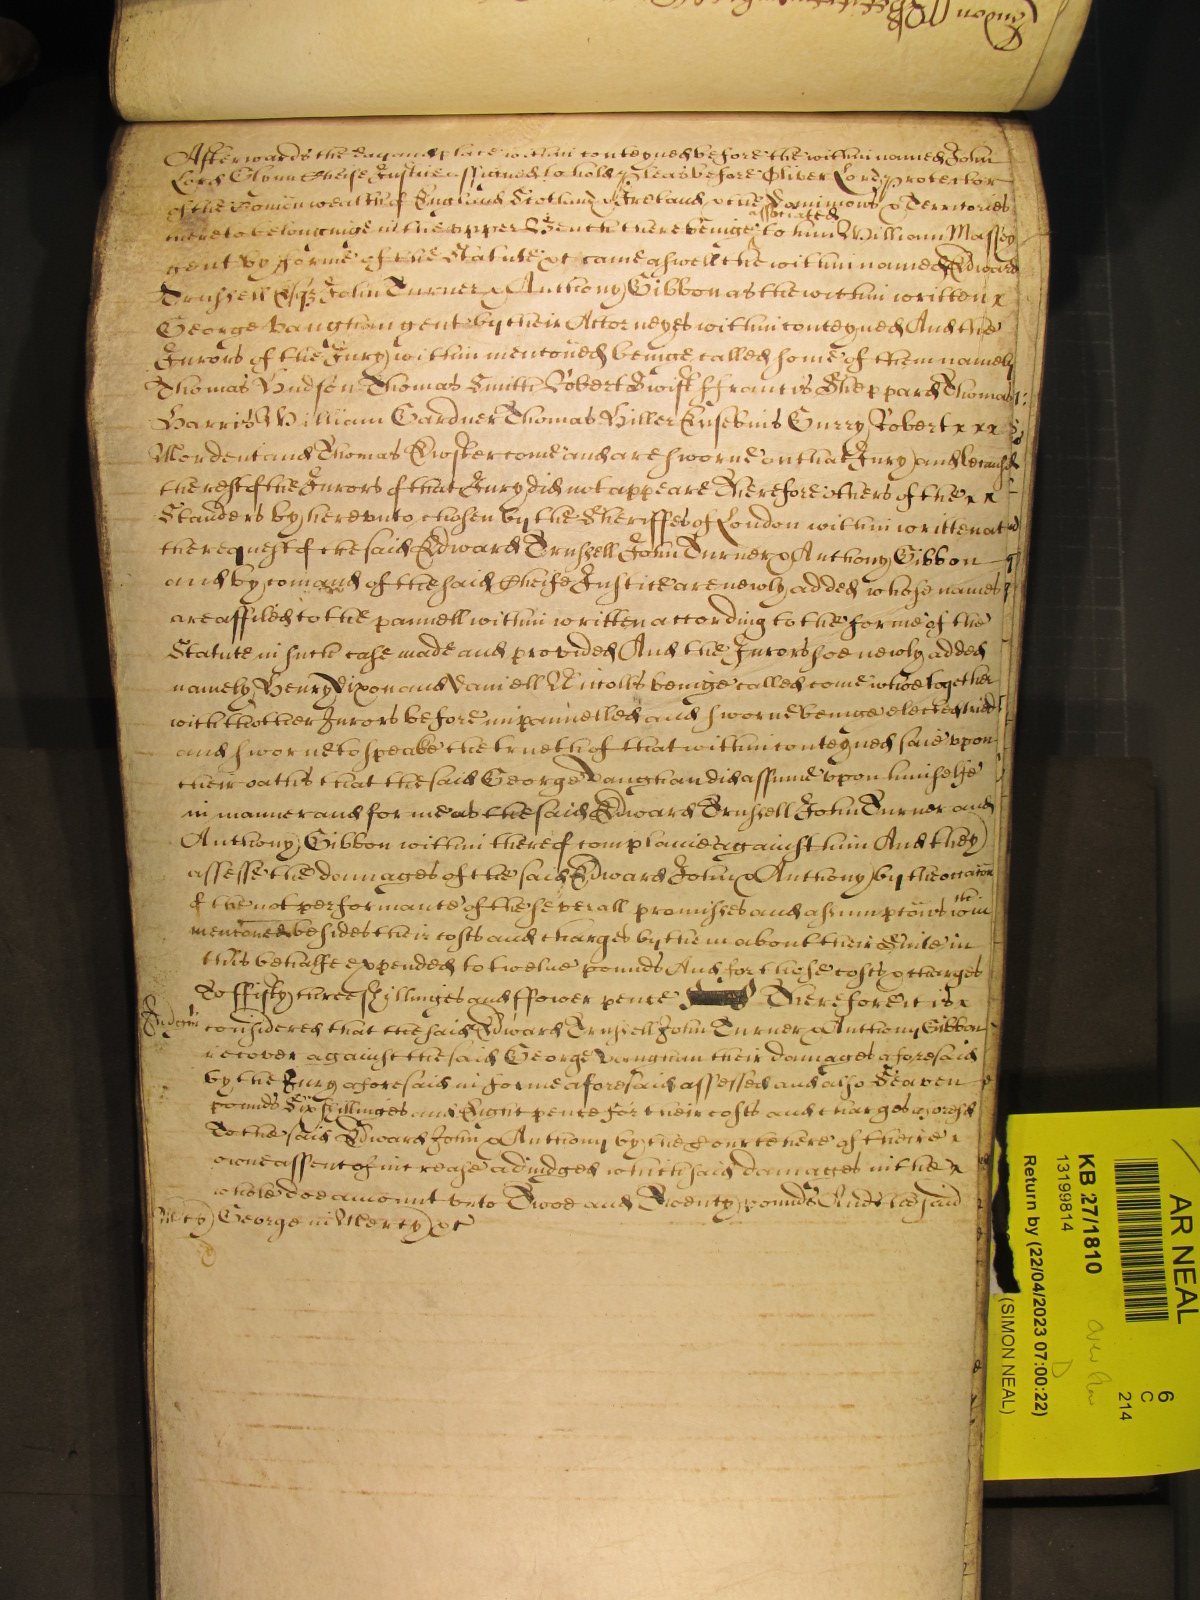 Afterwards the day and place within conteyned before the within named John
Lord Glynn Cheife Justice assigned to hold pleas before Oliver Lord Protector
of the Comonwealth of England Scotland & Ireland & the Dominions & Territories
thereto belonginge in the upper Bench there beinge associated to him William Massey
gent by forme of the Statute &c came aswell the within named Edward
Trussell Esqr John Turner & Anthony Gibbon as the within written x
George Vaughan gent by their Attorneyes within conteyned And the
Jurors of the Jury within menconed beinge called some of them namely
Thomas Hudson Thomas Smith Robert Swift ffrancis Sheppard Thomas
Harris William Gardner Thomas Hiller Eusebius Curry Robert x x x
Mordent and Thomas come and are sworne on that Jury and because
the rest of the Jurors of that Jury did not appeare Therefore others of the x x
Standers by hereunto chosen by the Sheriffes of London within written at
the request of the said Edward Trussell John Turner & Anthony Gibbon
and by comand of the said Cheife Justice are newly added whose names
are affiled to the pannell within written according to the forme of the
Statute in such case made and provided And the Jurors soe newly added
namely Henry Dixon and Daniell Nicolls beinge called come whoe together
with thother Jurors before impannelled and sworne beinge elected tried
and sworne to speake the trueth of that within conteyned saie upon
their oathes that the said George Vaughan did assume upon himselfe
in manner and forme as the said Edward Trussell John Turner and
Anthony Gibbon within thereof complaine against him And they
assesse the damages of the said Edward John & Anthony by the occacon
of the not performance of the severall promisses and assumptions within
mencioned besides their costs and charges by them about their Suite in
this behalfe expended to twelve pounds And for those costs & charges
To ffifty three shillinges and ffower pence Therefore it is x
Judgmt considered that the said Edward Trussell John Turner & Anthony Gibbon
recover against the said George Vaughan their damages aforesaid
by the Jury aforesaid in forme aforesaid assessed and also Seaven
pounds Six shillinges and Eight pence for their costs and charges aforesd
To the said Edward John & Anthony by the Court here of theire x
owne assent of increase adiudged which said damages in the x
whole doe amount unto Twoe and Twenty pounds And the said
Mcy George in Mercy &c
AR NEAL
6
C
214
KB 27/1810
13199814
Return by (22/04/2023 07:00:22)
(SIMON NEAL)